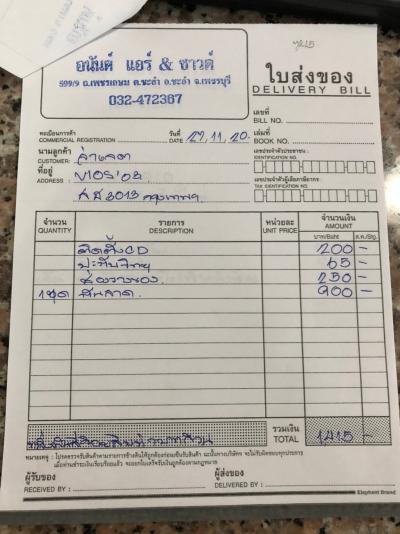 อนันต์ แอร์ & ซาวด์
599/9 ถ.เพชรเกษม ต.ชะอำ อ.ชะอำ จ.เพชรบุรี
032-472367
ใบส่งของ
DELIVERY BILL
เลขที่
BILL NO.
ทะเบียนการค้า
COMMERCIAL REGISTRATION
วันที่
DATE 27.11.20.
เล่มที่
BOOK NO.
นามลูกค้า
CUSTOMER:
ที่อยู่
ADDRESS : VIOS'03
3013 กรุงเทพฯ
เลขประจำตัวประชาชน :
IDENTIFICATION NO.
เลขประจำตัวผู้เสียภาษีอากร
TAX IDENTIFICATION NO.
จำนวน
QUANTITY
รายการ
DESCRIPTION
หน่วยละ
UNIT PRICE
จำนวนเงิน
AMOUNT
บาท/Baht ส.ต./Stg.
ติดตั้ง CD 200 -
65 -
ช่องวางของ 250 -
1 ชุด 900 -
รวมเงิน
TOTAL 1415 -
หมายเหตุ : โปรดตรวจรับสินค้าตามรายการข้างต้นให้ถูกต้องก่อนเซ็นรับสินค้า ฉะนั้นทางบริษัทฯ จะไม่รับผิดชอบทุกประการ
เมื่อท่านชำระเงินเรียบร้อยแล้ว จะออกใบเสร็จรับเงินถูกต้องตามกฎหมาย
ผู้รับของ
RECEIVED BY :
ผู้ส่งของ
DELIVERED BY :
Elephant Brand